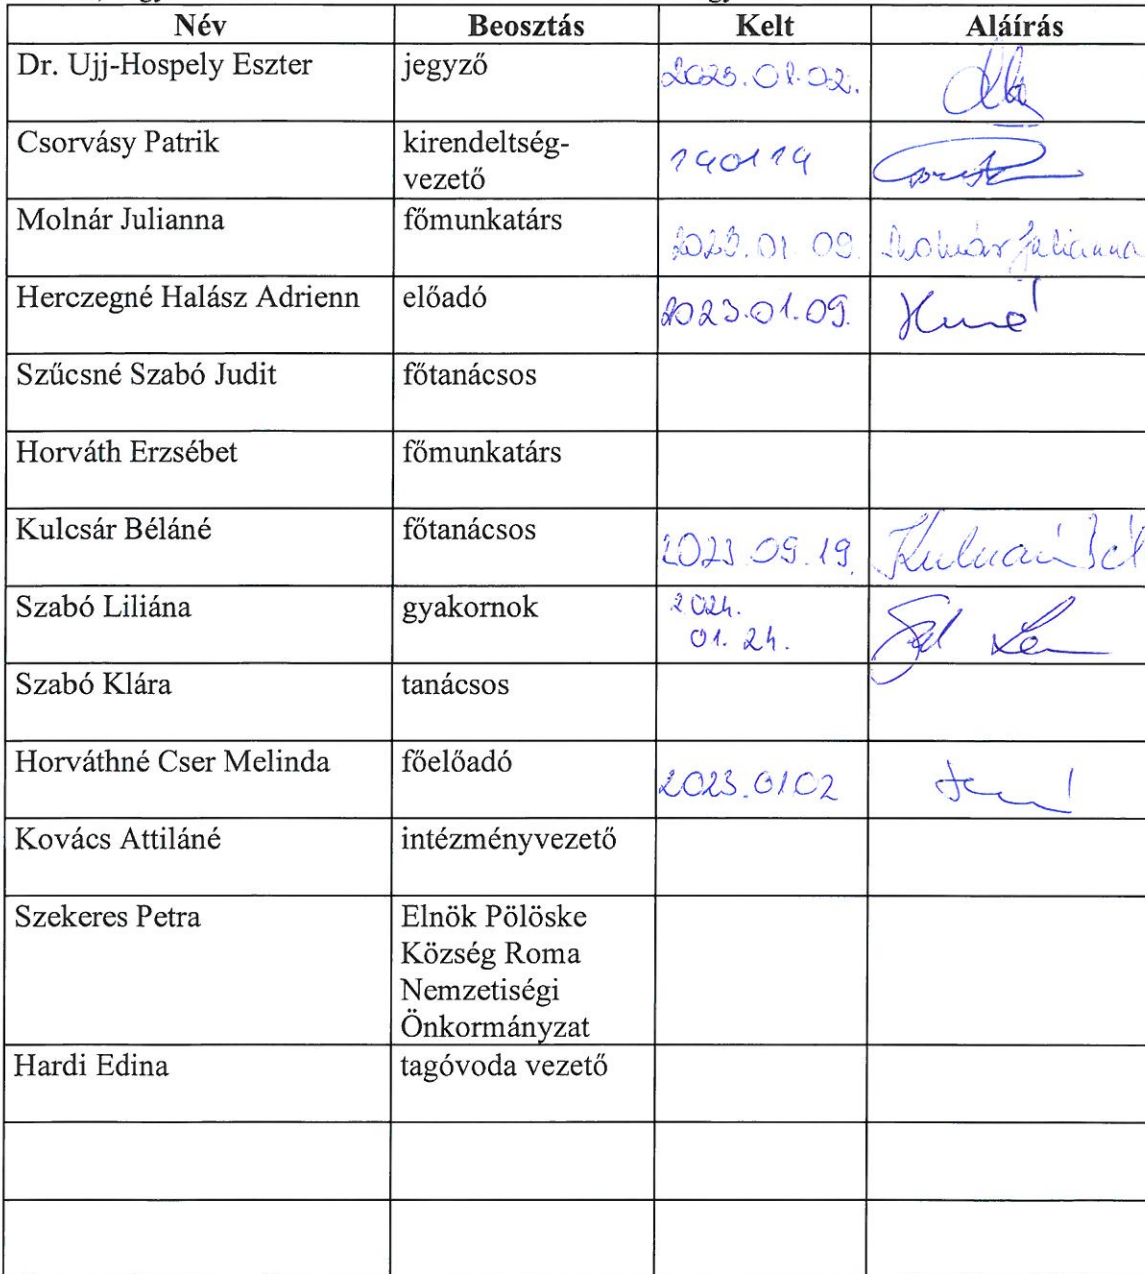 Név Beosztás Kelt Aláírás
Dr. Ujj-Hospely Eszter jegyző 2023.01.02.
Csorvásy Patrik kirendeltség-
vezető
Molnár Julianna főmunkatárs 2023.01.09. Molnár Julianna
Herczegné Halász Adrienn előadó 2023.01.09.
Szűcsné Szabó Judit főtanácsos
Horváth Erzsébet főmunkatárs
Kulcsár Béláné főtanácsos 2023.09.19.
Szabó Liliána gyakornok 2024.
01.24.
Szabó Klára tanácsos
Horváthné Cser Melinda főelőadó 2023.0102
Kovács Attiláné intézményvezető
Szekeres Petra Elnök Pölöske
Község Roma
Nemzetiségi
Önkormányzat
Hardi Edina tagóvoda vezető